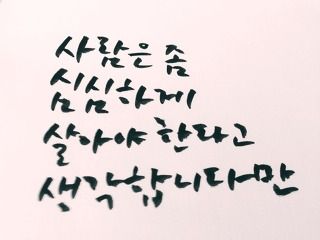 사람은 좀
심심하게
살아야 한다고
생각합니다만